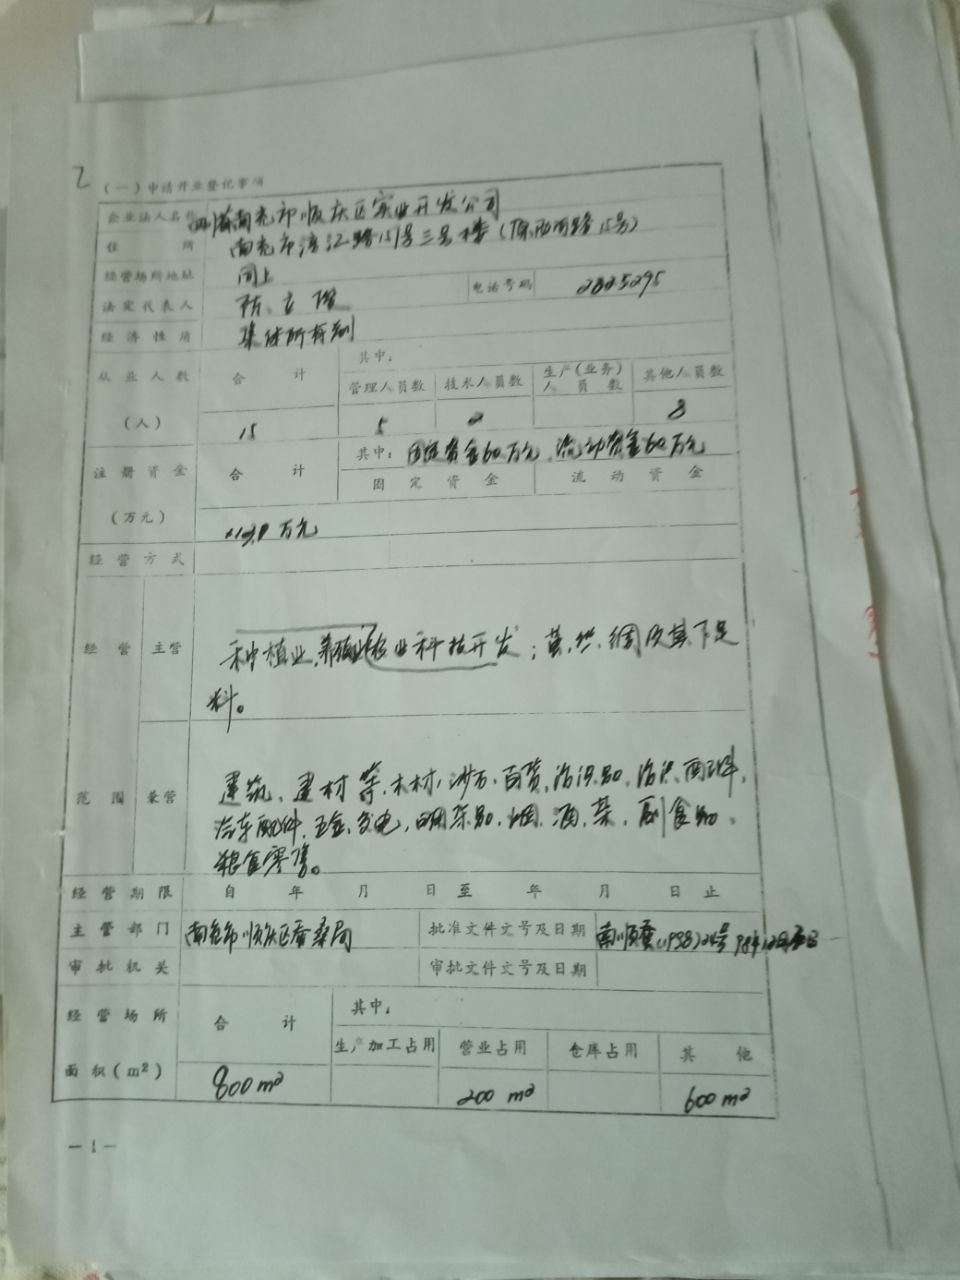 2
(一)申请开业登记事项
企业法人名称 四川省南充市顺庆区实业开发公司
住所 南充市涪江路151号三号楼(原西河路15号)
经营场所地址 同上
电话号码 2825295
法定代表人 陈立
经济性质 集体所有制
从业人数 合计 其中:
管理人员数 技术人员数 生产(业务)人员数 其他人员数
(人) 15 5 8
注册资金 合计 其中: 固定资金60万元、流动资金60万元
固定资金 流动资金
(万元) 万元
经营方式
经营 主营 种植业、农业科技开发;茧、丝、绸及其下足
料。
范围 兼营 建筑、建材等、木材、沙石、百货、
汽车配件、五金、交电、烟、酒、茶、副食
经营期限 自 年 月 日至 年 月 日止
主管部门 南充市顺庆区蚕桑局 批准文件文号及日期 南顺蚕(1998)24号 98年12月
审批机关 审批文件文号及日期
经营场所 合计 其中:
生产加工占用 营业占用 仓库占用 其他
面积(m²) 800m² 200m² 600m²
—1—